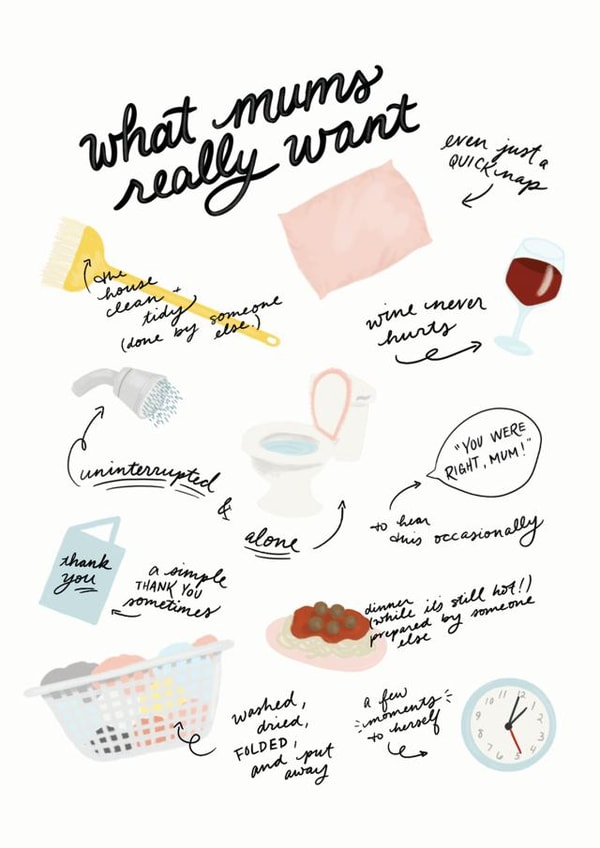 what mums
really want
even just a
QUICK nap
the
house
clean +
tidy
(done by someone
else)
wine never
hurts
uninterrupted
&
alone
"YOU WERE
RIGHT, MUM!"
to hear
this occasionally
thank
you
a simple
THANK YOU
sometimes
dinner
(while its still hot!)
prepared by someone
else
washed,
dried,
FOLDED,
and put
away
a few
moments
to herself
12
1
2
3
4
5
6
7
8
9
10
11